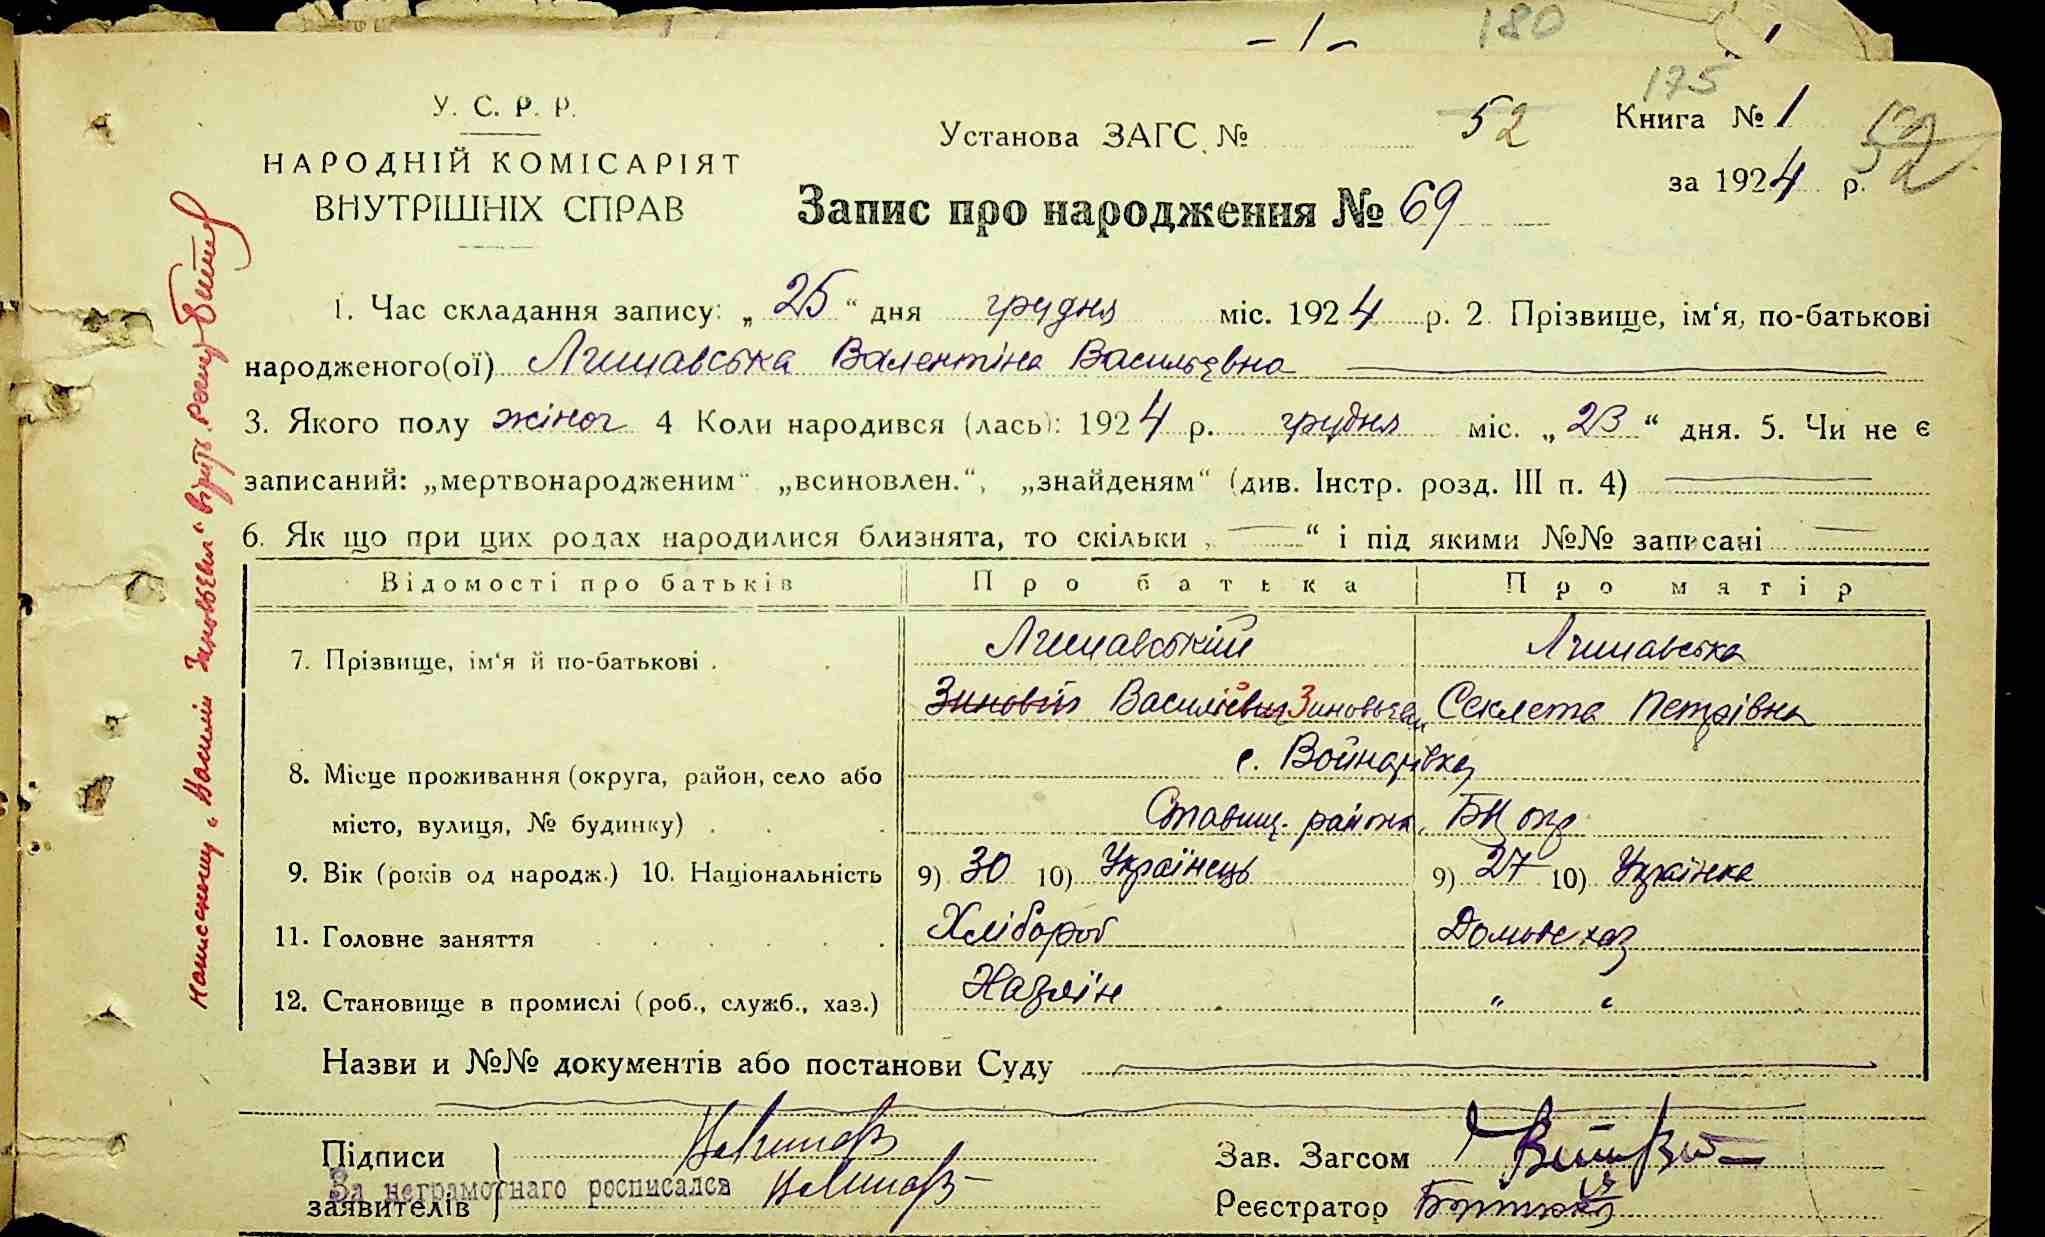 - 1 -
180
175
У. С. Р. Р.
НАРОДНІЙ КОМІСАРІЯТ
ВНУТРІШНІХ СПРАВ
Установа ЗАГС. № 52
Книга № 1
за 1924 р.
52
Запис про народження № 69
1. Час складання запису: „ 25 “ дня грудня міс. 1924 р. 2. Прізвище, ім‘я, по-батькові
народженого(ої) Лишавська Валентіна Васильєвна
3. Якого полу жіноч 4 Коли народився (лась): 1924 р. грудня міс. „ 23 “ дня. 5. Чи не є
записаний: „мертвонародженим“ „всиновлен.“, „знайденям“ (див. Інстр. розд. III п. 4)
6. Як що при цих родах народилися близнята, то скільки „ “ і під якими №№ записані
Відомості про батьків Про батька Про матір
7. Прізвище, ім‘я й по-батькові . Лишавський Лишавська
Зиновій Василієвич Зиновьєв Секлета Петрівна
8. Місце проживання (округа, район, село або с. Войнарівка
місто, вулиця, № будинку) . Ставищ. района, БЦ окр
9. Вік (років од народж.) 10. Національність 9) 30 10) Українець 9) 27 10) Українка
11. Головне заняття Хлібороб Домовехаз
12. Становище в промислі (роб., служб., хаз.) Хазяїн „ “
Назви и №№ документів або постанови Суду
Підписи
заявителів
За неграмотнаго росписался
Зав. Загсом
Реєстратор
Написаному „Василій Зиновьевич“ вірить